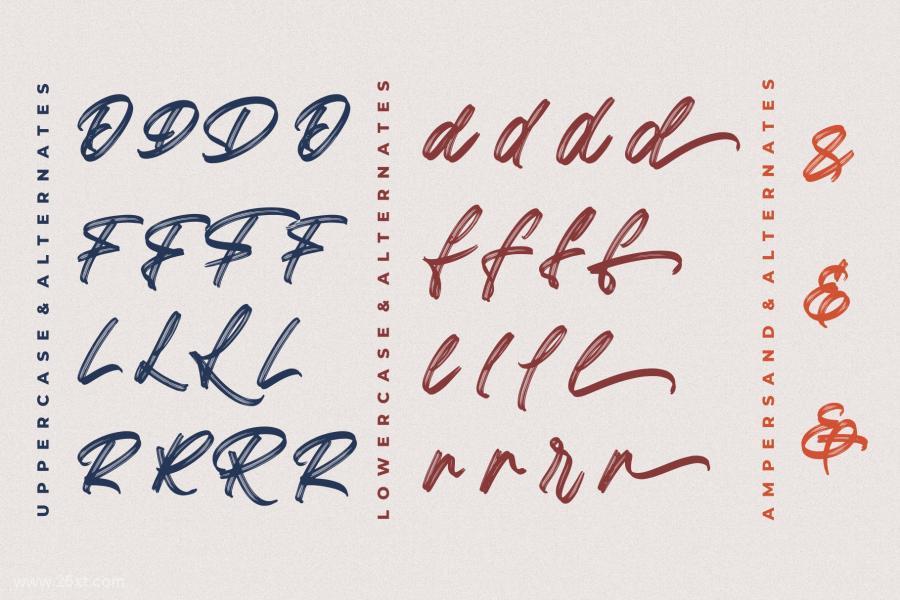 UPPERCASE & ALTERNATES
D D D D
F F F F
L L L L
R R R R
LOWERCASE & ALTERNATES
d d d d
f f f f
l l l l
r r r r
AMPERSAND & ALTERNATES
&
&
&
www.26xt.com